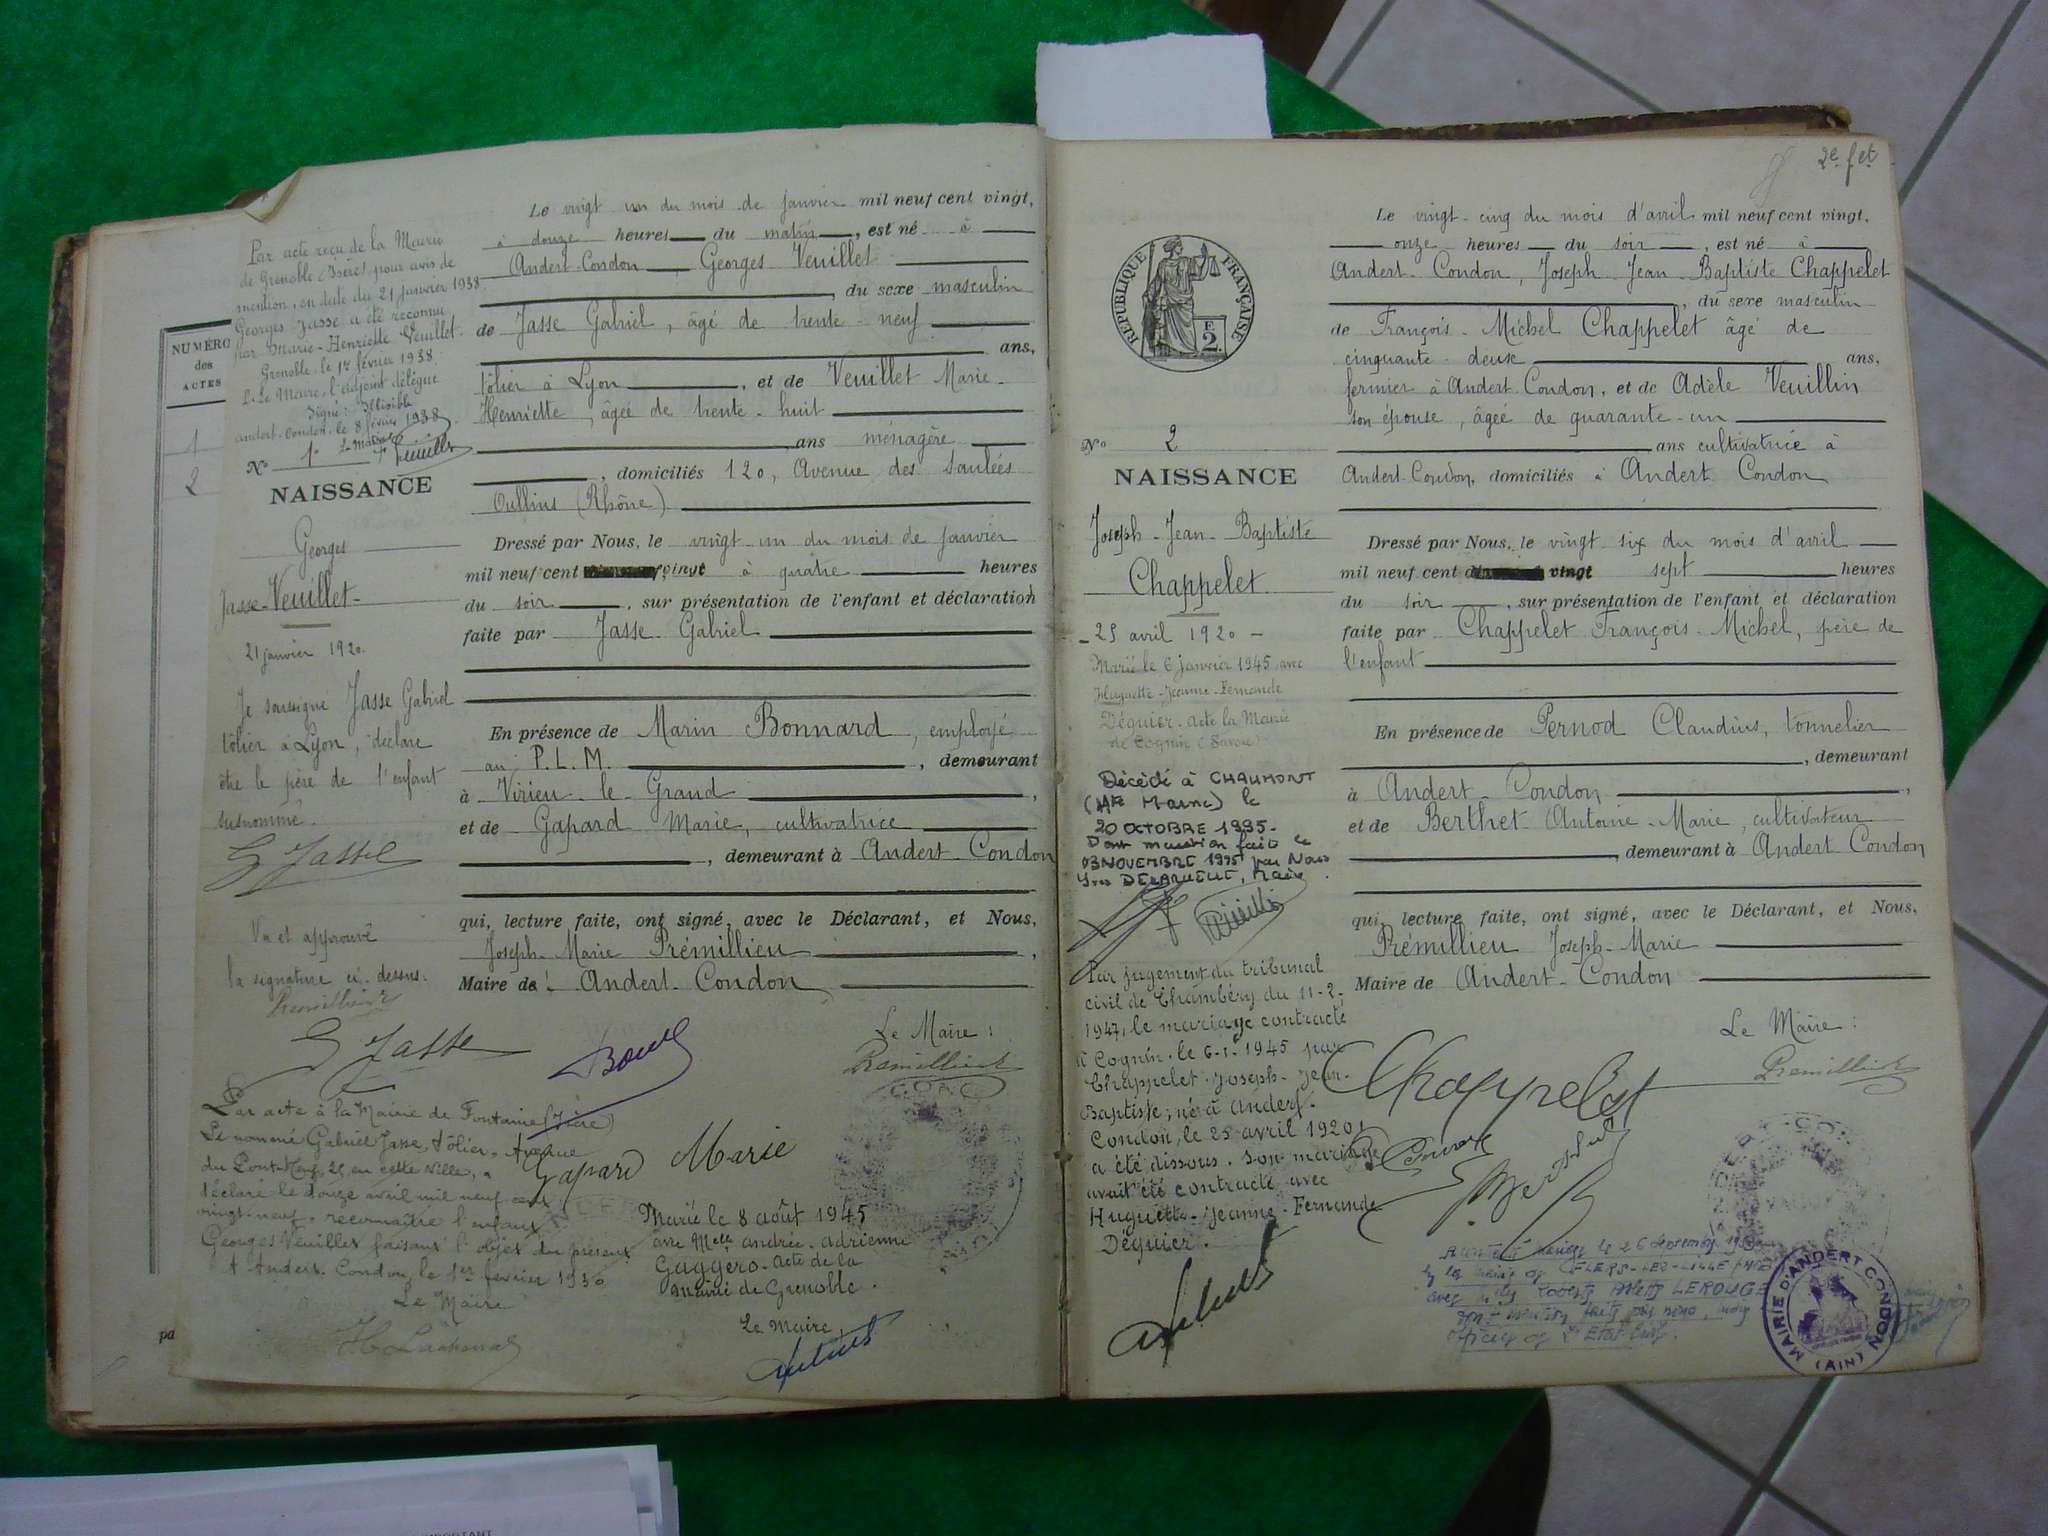 NUMÉRO
des
ACTES
1
2
Par acte reçu de la Mairie
de Grenoble (Isère) pour avis de
mention, en date du 21 janvier 1938
Georges Jasse a été reconnu
par Marie-Henriette Veuillet.
Grenoble, le 1er février 1938.
Le Maire, l'adjoint délégué
Signé: Illisible
Andert-Condon le 8 février 1938
Le Maire
No 1
NAISSANCE
Georges
Jasse-Veuillet
21 janvier 1920.
Je soussigné Jasse Gabriel
tôlier à Lyon, déclare
être le père de l'enfant
susnommé.
G Jasse
Vu et approuvé
la signature ci-dessus.
Premillieu
Le vingt un du mois de janvier mil neuf cent vingt,
à douze heures du matin, est né à
Andert-Condon, Georges Veuillet
, du sexe masculin
de Jasse Gabriel, âgé de trente-neuf
ans,
tôlier à Lyon, et de Veuillet Marie-
Henriette, âgée de trente-huit
ans ménagère
, domiciliés 120, Avenue des Saulées
Oullins (Rhône)
Dressé par Nous, le vingt-un du mois de janvier
mil neuf cent vingt à quatre heures
du soir, sur présentation de l'enfant et déclaration
faite par Jasse Gabriel
En présence de Marin Bonnard, employé
au P.L.M., demeurant
à Virieu-le-Grand,
et de Gapard Marie, cultivatrice
, demeurant à Andert-Condon
qui, lecture faite, ont signé, avec le Déclarant, et Nous,
Joseph-Marie Prémillieu,
Maire de Andert-Condon
Le Maire:
Premillieu
G Jasse
Gapard Marie
Par acte à la Mairie de Fontaine (Isère)
Le nommé Gabriel Jasse, tôlier, Avenue
du Pont-Neuf, 25, en cette ville, a
déclaré le douze avril mil neuf cent
vingt-neuf, reconnaître l'enfant
Georges Veuillet faisant l'objet du présent
A Andert-Condon, le 1er février 1930
Le Maire
Marié le 8 août 1945
avec Melle Andrée-Adrienne
Gaggero-Acte de la
mairie de Grenoble.
Le Maire,
2e fet
RÉPUBLIQUE FRANÇAISE
F.
2.
No 2
NAISSANCE
Joseph-Jean-Baptiste
Chappelet
-25 avril 1920-
Marié le 6 janvier 1945 avec
Huguette-Jeanne-Fernande
Déguier-acte la Mairie
de Cognin (Savoie)
Décédé à CHAUMONT
(Hte Marne) le
20 OCTOBRE 1995-
Dont mention faite le
03 NOVEMBRE 1995 par Nous
Maire
Par jugement du tribunal
civil de Chambéry du 11-2-
1947, le mariage contracté
à Cognin le 6-1-1945 par
Chappelet-Joseph-Jean-
Baptiste, né à Andert-
Condon, le 25 avril 1920,
a été dissous. Son mariage
avait été contracté avec
Huguette-Jeanne-Fernande
Déguier.
Le vingt-cinq du mois d'avril mil neuf cent vingt,
onze heures du soir, est né à
Andert-Condon, Joseph Jean-Baptiste Chappelet
, du sexe masculin
de François-Michel Chappelet âgé de
cinquante-deux ans,
fermier à Andert-Condon, et de Adèle Veuillin
son épouse, âgée de quarante-un
ans cultivatrice à
Andert-Condon, domiciliés à Andert Condon
Dressé par Nous, le vingt-six du mois d'avril
mil neuf cent vingt sept heures
du soir, sur présentation de l'enfant et déclaration
faite par Chappelet François-Michel, père de
l'enfant
En présence de Pernod Claudius, tonnelier
, demeurant
à Andert-Condon,
et de Berthet Antoine-Marie, cultivateur
, demeurant à Andert-Condon
qui, lecture faite, ont signé, avec le Déclarant, et Nous,
Prémillieu Joseph-Marie
Maire de Andert-Condon
Le Maire:
Premillieu
Chappelet
le 26
FLERS-LEZ-LILLE
avec LEROUGE
MAIRIE D'ANDERT CONDON
(AIN)
IMPORTANT